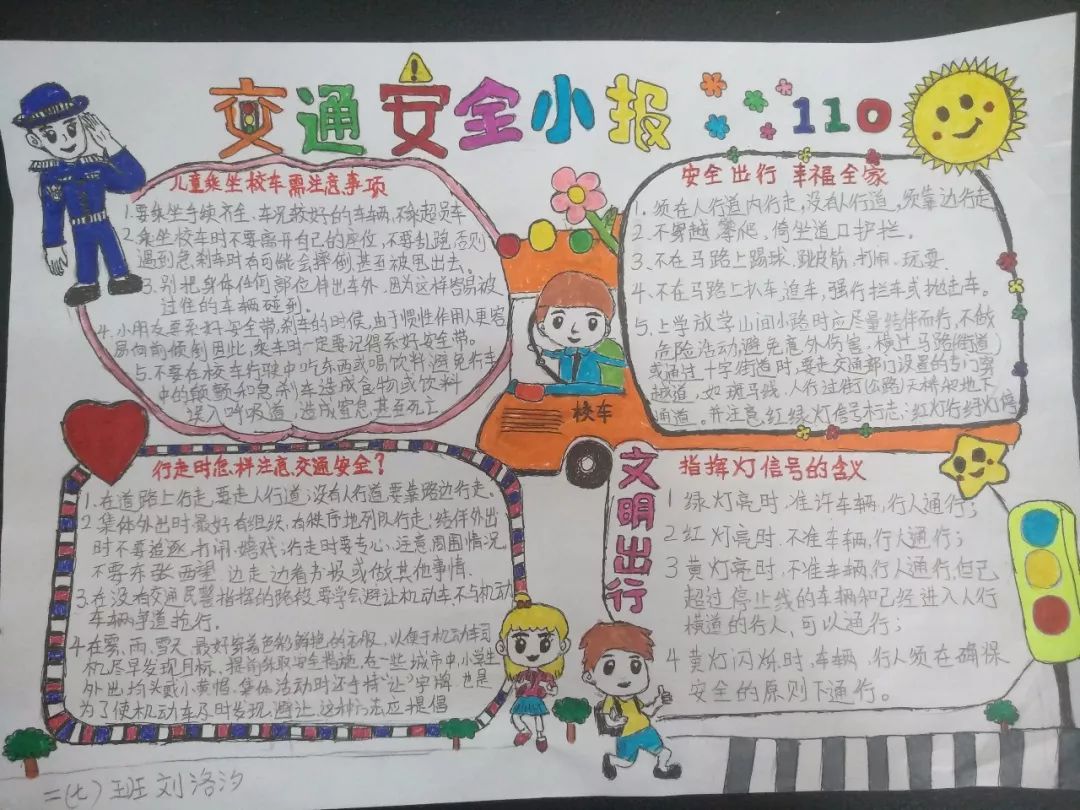 交通安全小报
110
儿童乘坐校车需注意事项
1.要乘坐手续齐全、车况较好的车车辆,不乘超员车
2.乘坐校车时不要离开自己的座位,不要乱跑,否则
遇到急刹车时有可能会摔倒,甚至被甩出去。
3.别把身体任何部位伸出车外,因为这样容易被
过往的车辆碰到。
4.小朋友要系好安全带,刹车的时候,由于惯性作用人更容
易向前倾倒因此,乘车时一定要记得系好安全带。
5.不要在校车行驶中吃东西或喝饮料,避免行车
中的颠簸和急刹车造成食物或饮料
误入呼吸道,造成窒息,甚至死亡
安全出行 幸福全家
1.须在人行道内行走,没有人行道,须靠边行走
2.不穿越、攀爬、倚坐道口护栏。
3.不在马路上踢球、跳皮筋、打闹、玩耍.
4.不在马路上扒车,追车,强行拦车或抛击车。
5.上学放学山间小路时应尽量结伴而行,不做
危险活动,避免意外伤害.横过马路(街道)
或通过十字街道时,要走交通部门设置的专门穿
越道,如斑马线、人行过街(公路)天桥和地下
通道。并注意,红绿灯信号标志,红灯行绿灯停
校车
行走时怎样注意交通安全?
1.在道路上行走,要走人行道;没有人行道,要靠路边行走.
2.集体外出时,最好有组织,有秩序地列队行走;结伴外出
时不要追逐、打闹、嬉戏;行走时要专心,注意周围情况,
不要东张西望、边走边看书报或做其他事情.
3.在没有交通民警指挥的路段,要学会避让机动车,不与机动
车辆争道抢行.
4.在雾、雨、雪天,最好穿着色彩鲜艳的衣服,以便于机动车司
机尽早发现目标,提前采取安全措施.在一些城市中,小学生
外出均头戴小黄帽,集体活动时还手持“让”字牌,也是
为了使机动车及时发现、避让,这种方法应提倡
文明出行
指挥灯信号的含义
1 绿灯亮时,准许车辆,行人通行;
2 红灯亮时,不准车辆,行人通行;
3 黄灯亮时,不准车辆,行人通行,但已
超过停止线的车辆和已经进入人行
横道的行人,可以通行;
4 黄灯闪烁时,车辆,行人须在确保
安全的原则下通行。
二(七)班 刘洛汐